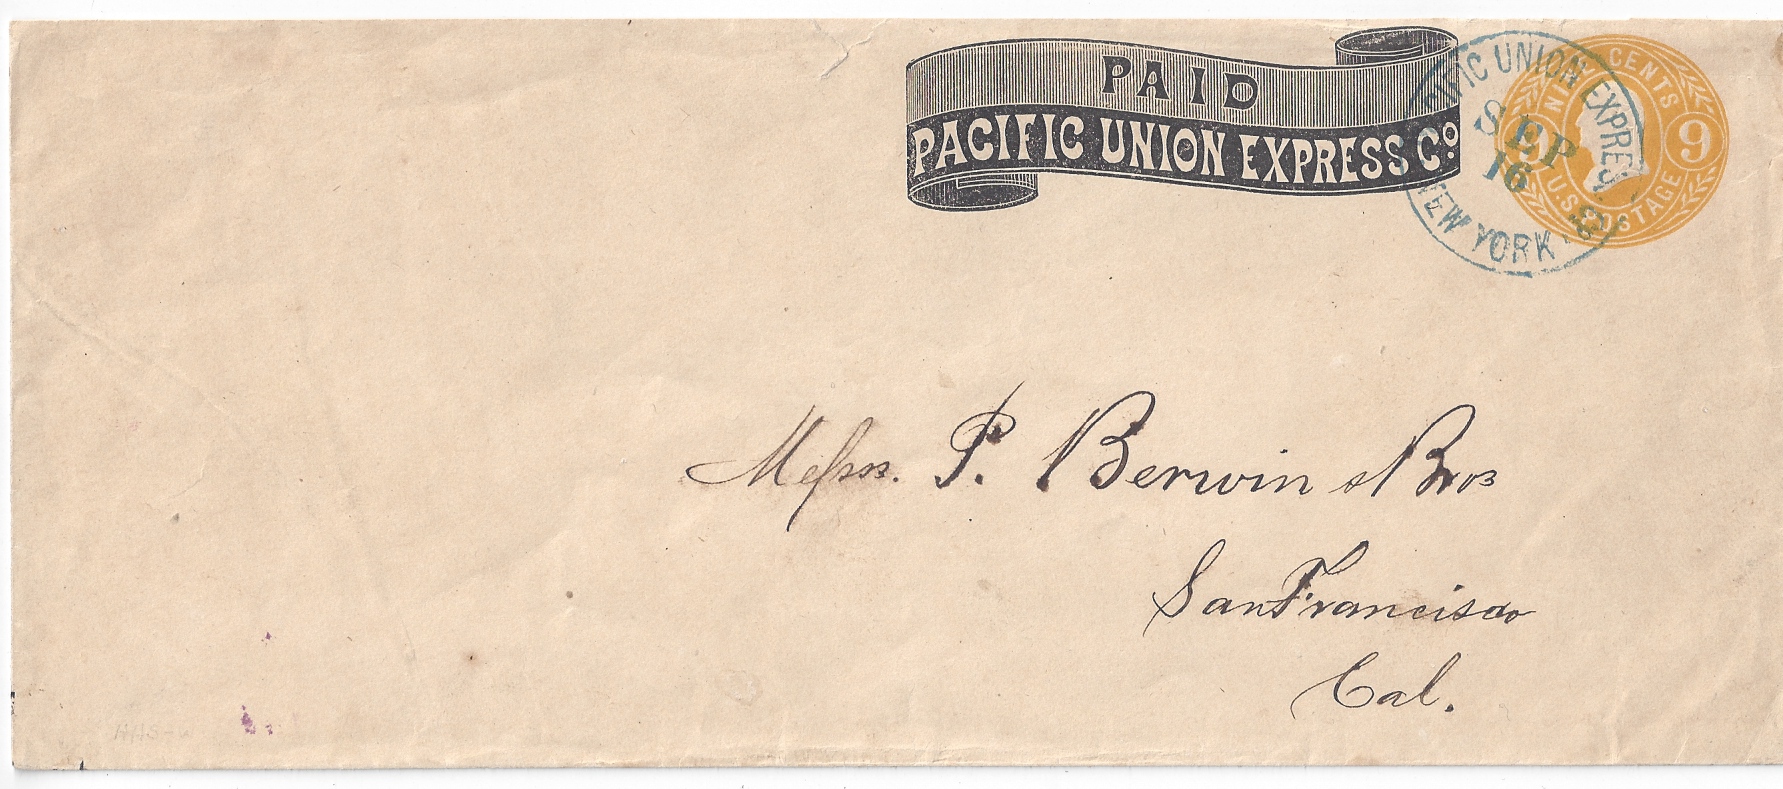 PAID
PACIFIC UNION EXPRESS Co.
PACIFIC UNION EXPRESS
SEP
16
NEW YORK
NINE CENTS
9 9
U.S. POSTAGE
Messrs. P. Berwin & Bros
San Francisco
Cal.